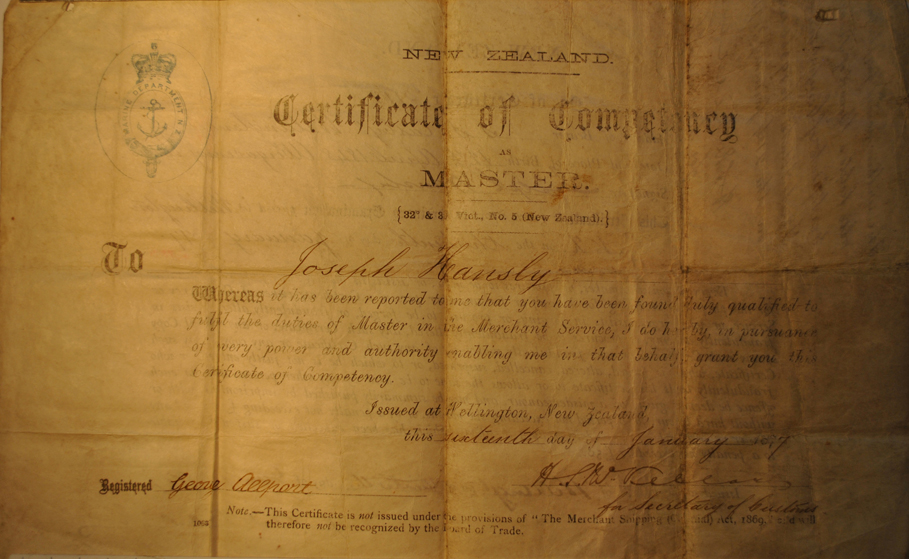 MARINE DEPARTMENT N.Z.
NEW ZEALAND.
Certificate of Competency
AS
MASTER.
{32° & 3 Vict., No. 5 (New Zealand).}
To
Joseph Hansly
Whereas it has been reported to me that you have been found duly qualified to
fulfil the duties of Master in the Merchant Service, I do hereby, in pursuance
of every power and authority enabling me in that behalf, grant you this
Certificate of Competency.
Issued at Wellington, New Zealand,
this sixteenth day of January
Registered George Allport
for Secretary of Customs
Note.—This Certificate is not issued under the provisions of "The Merchant Shipping Act, 1869, and will
therefore not be recognized by the Board of Trade.